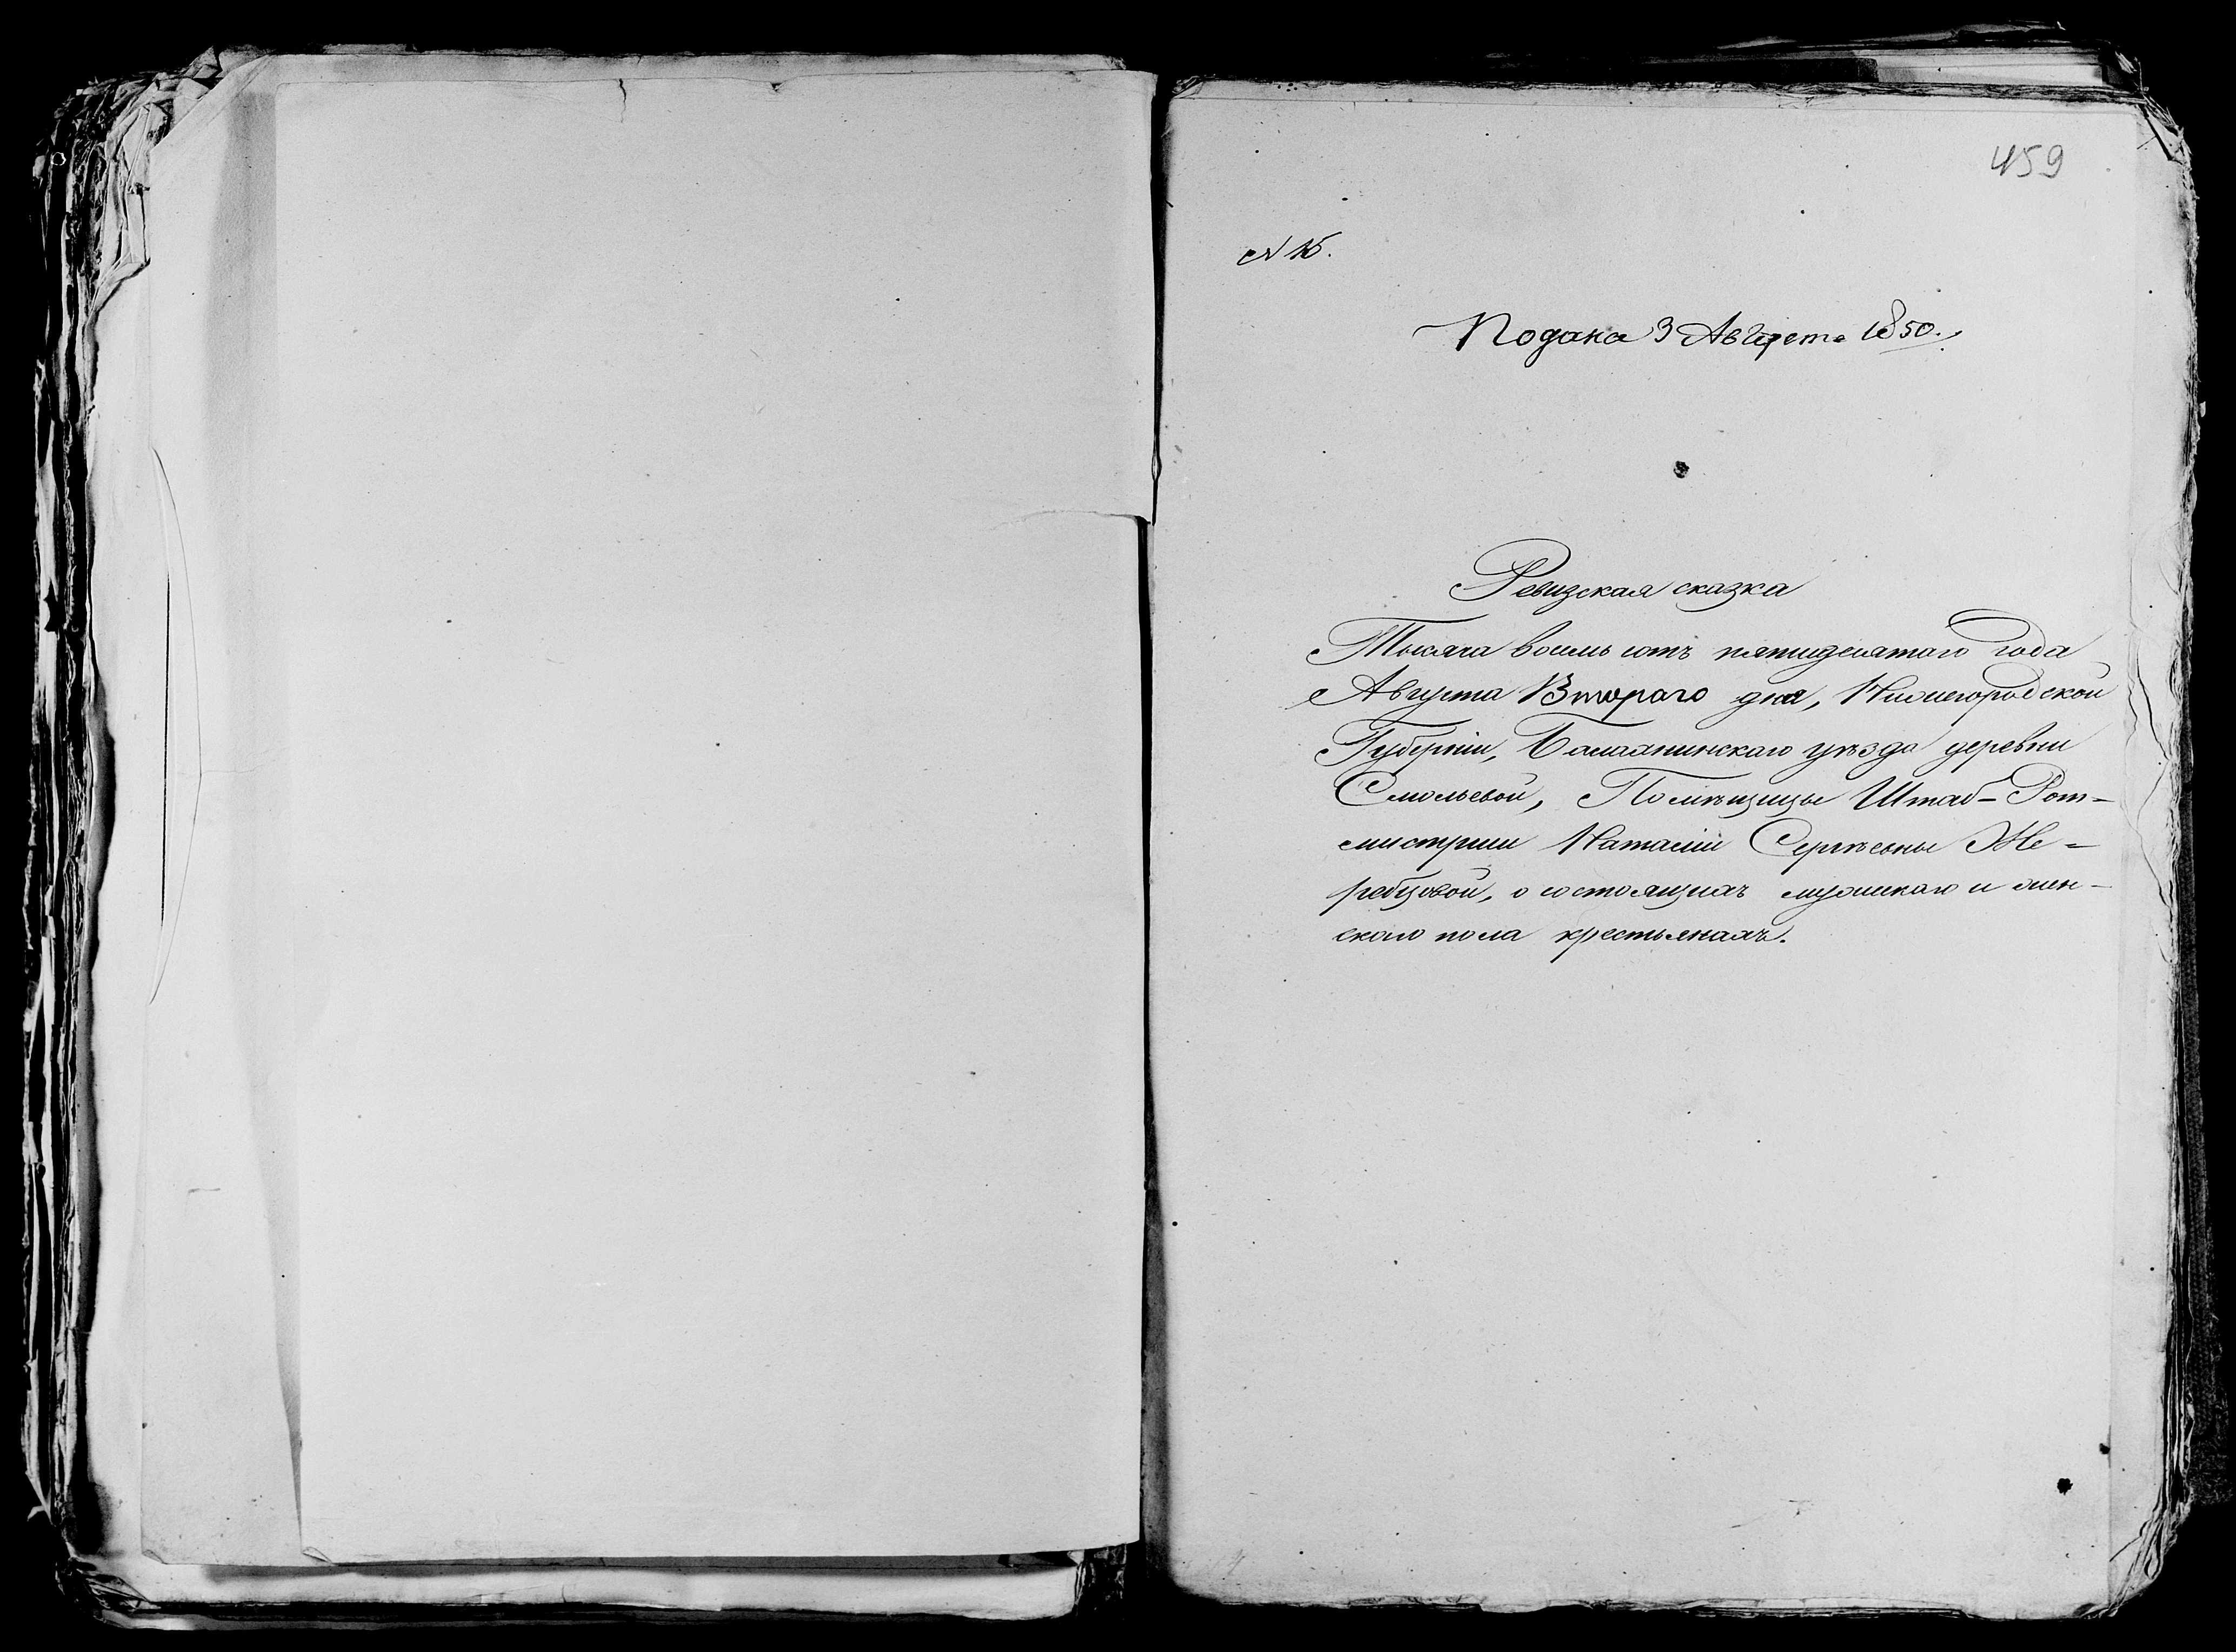 459
N 16.
Подана 3 Августа 1850.
Ревизская сказка
Тысяча восемь сотъ пятидесятаго года
Августа Втораго дня, Нижегородской
Губерніи, Балахнинскаго уѣзда деревни
Смольевой, Помѣщицы Штаб-Рот-
мистрши Наталіи Сергѣевны Же-
ребцовой, о состоящихъ мужскаго и жен-
скаго пола крестьянахъ.